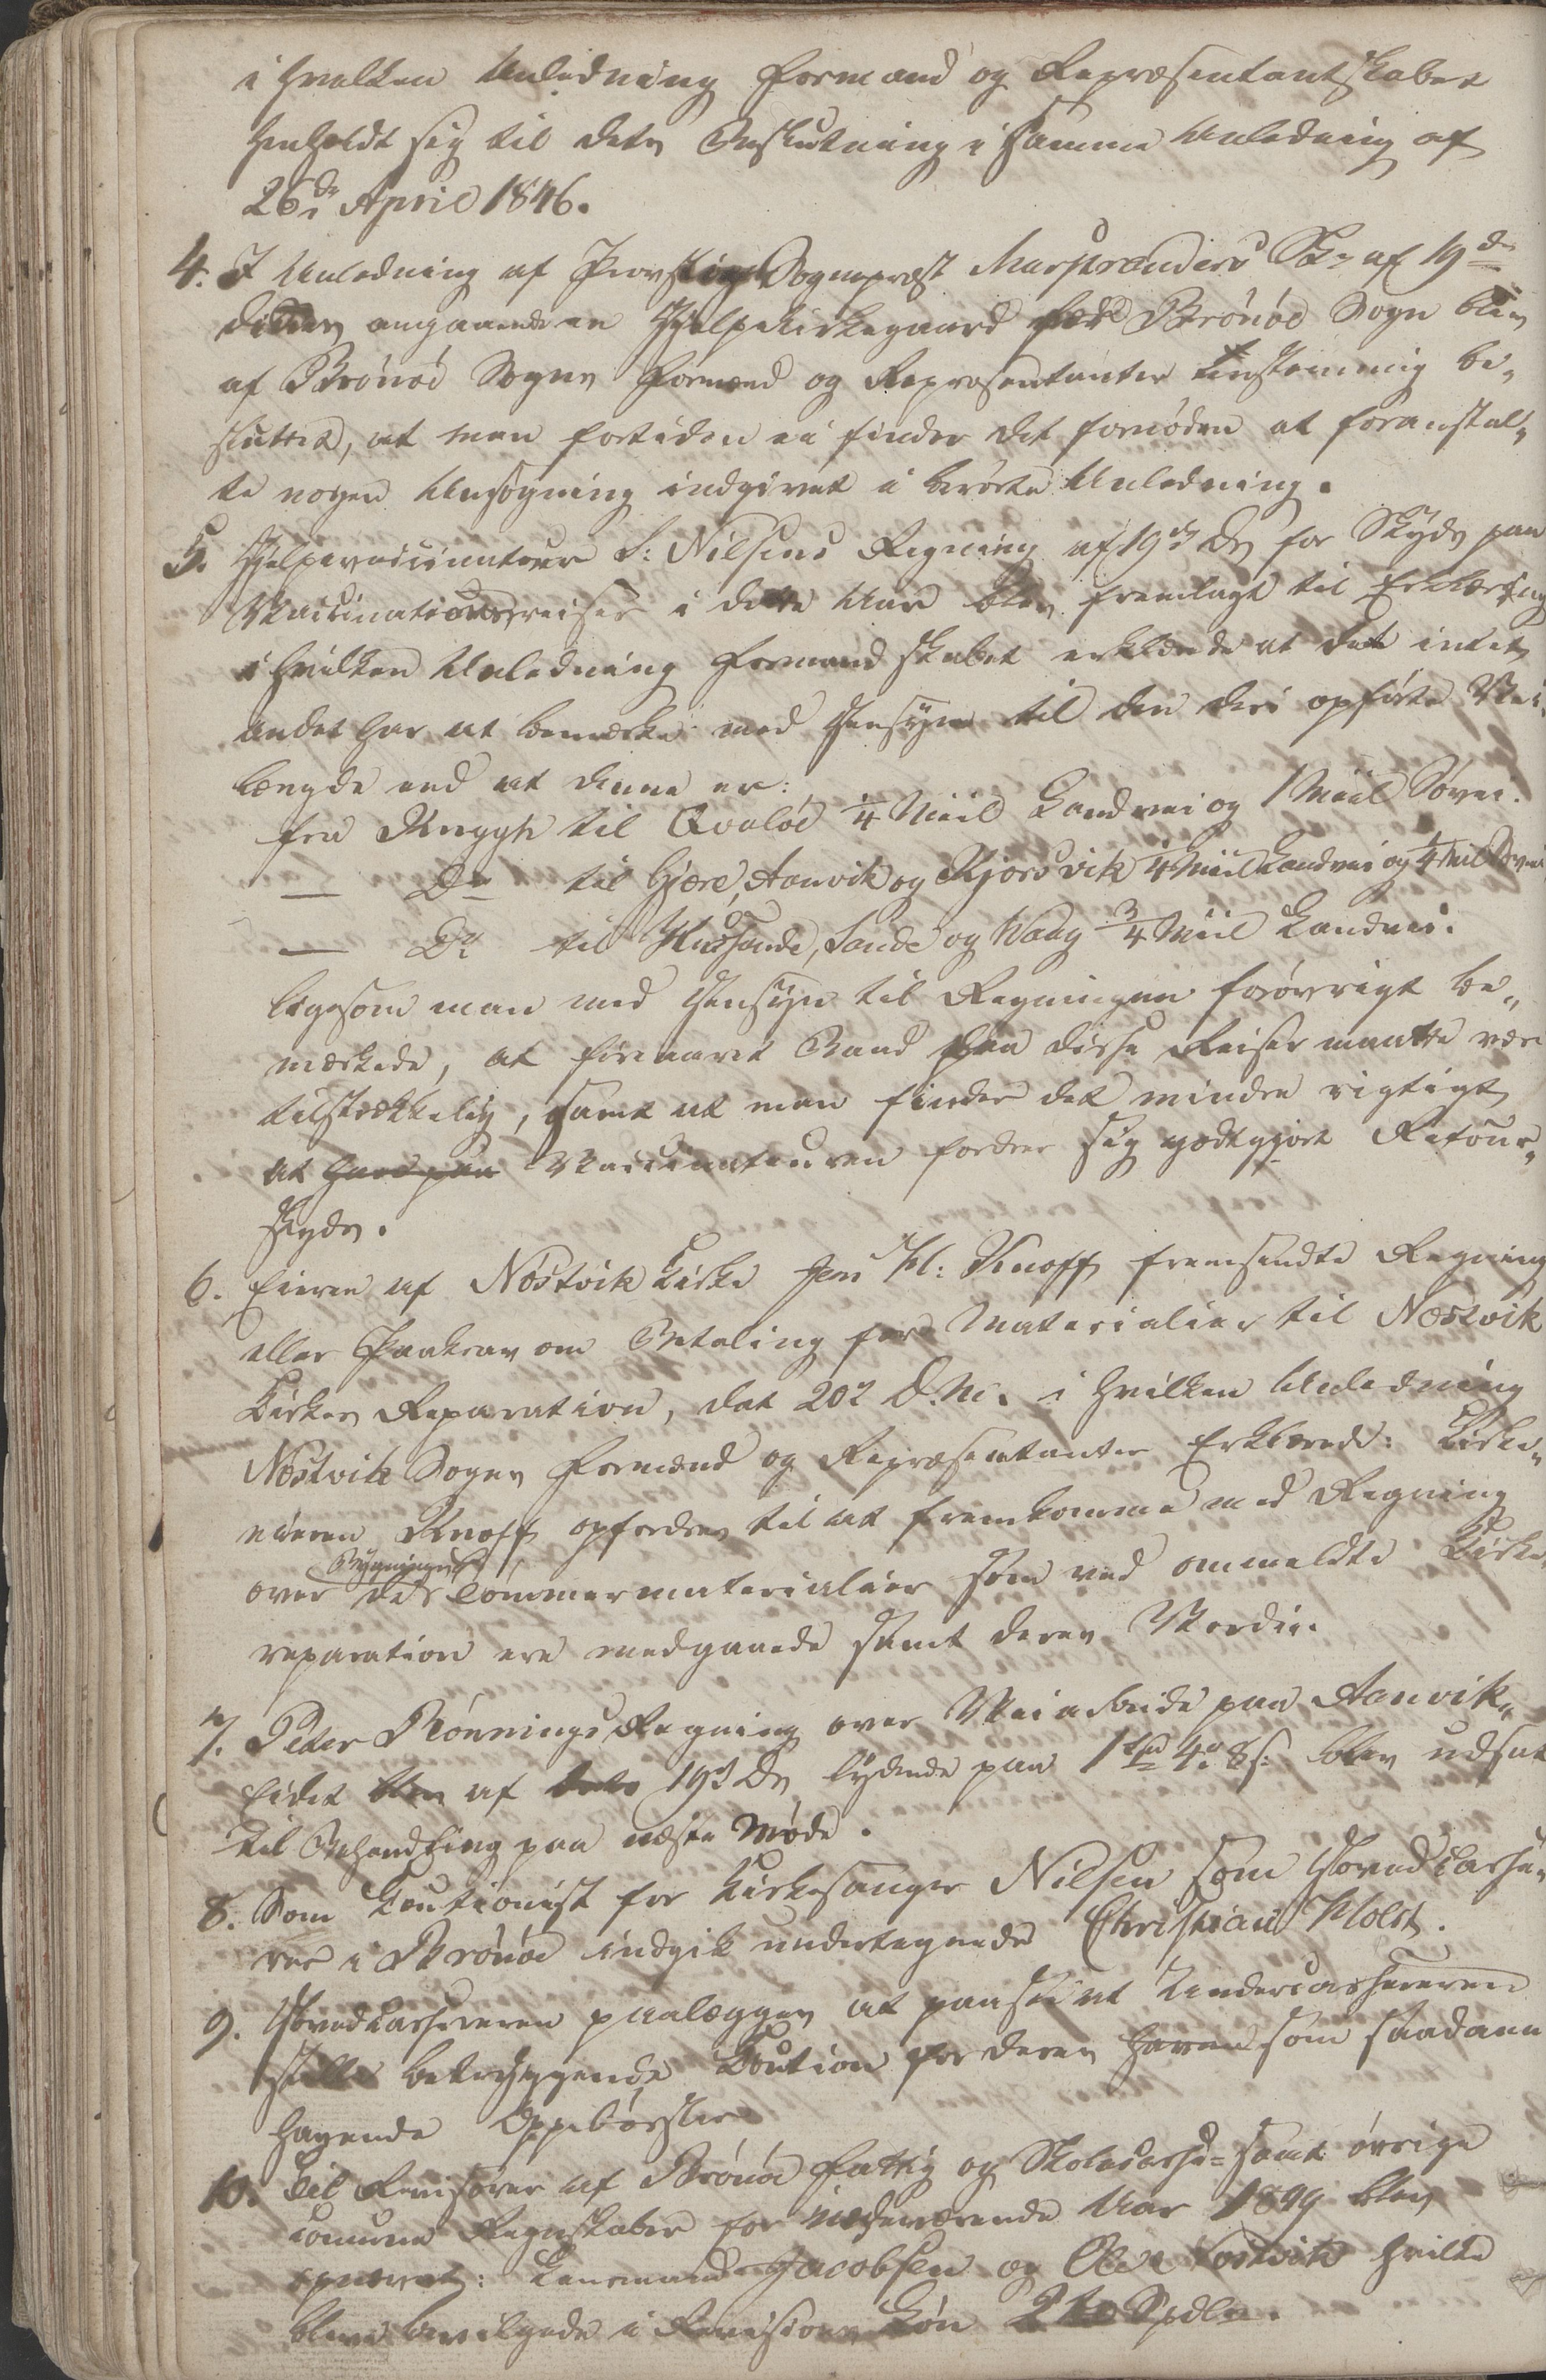 i hvilken Anledning Formænd og Repræsentantskabet
henholdt sig til dets Beslutning i samme Anledning af
26de April 1846.
4. I Anledning af Provst og Sognepræst Marstranders Skr. af 19de
angaaende en Hjelpekirkegaard for Brönöe Sogn blev
af Brönöe Sogns Formænd og Repræsentanter eenstemmig be-
sluttet, at man fortiden ei finder det fornöden at foranstal-
te nogen Ansögning indgivet i berörte Anledning.
5. Hjelpevaccinateur S: Nilsens Regning af 19de Ds for Skyds paa
Vaccinationsreiser i dette Aar blev fremlagt til Erklæring
i hvilken Anledning Formandskabet erklærede at det intet
andet har at bemærke med Hensyn til den deri opförte Vei-
længde end at denne er:
fra til Qvalöe 1/4 Miil Landvei og 1 Miil Søvei.
— Do til Gjære, Aanvik og Skjørsvik 1/4 Miil Landvei og 1/4 Miil Søvei
— Do til , Sande og Vaag 3/4 Miil Landvei.
ligesom man med Hensyn til Regningen forövrigt be-
mærkede, at fireaaret Baad paa disse Reiser maatte være
tilstrækkelig, samt at man finder det mindre rigtigt
at Vaccinateuren fordrer sig godtgjort Retour-
skyds.
6. Eieren af Nöstvik Kirke Jens H: Knoff fremsendte Regning
eller Paakrav om Betaling for Materialier til Næstvik
Kirkes Reparation, dat 20de D.M. i hvilken Anledning
Nøstvik Sogns Formænd og Repræsentanter Erklærede: Kirke-
eieren Knoff opfordres til at fremkomme med Regning
Bygnings
over de Tömmermaterialier som ved ommeldte Kirke
reparation ere medgaaede samt deres Værdie.
7. Peder Rönnings Regning over Veiarbeide paa Aanvik-
eidet af 19de Ds lydende paa 1 Spd 4 8 s: blev udsat
til Behandling paa næste Møde.
8. Som Cautionist for Kirkesanger Nilsen som Hovedcasse-
rer i Brönöe indgik undertegnede Christian Holst.
9. Hovedkassereren paalægges at paasee at Undercassereren
stiller betryggende Caution for deres som saadanne
havende Oppebørsler
10. Til Revisorer af Brönöe Fattig og Skolecasse- samt övrige
Comune Regnskaber for inderværende Aar 1849 blev
opnævnt: Lensmand Jacobsen og Ole hvilke
bleve bevilgede i Revisions Løn 2 Spdlr.